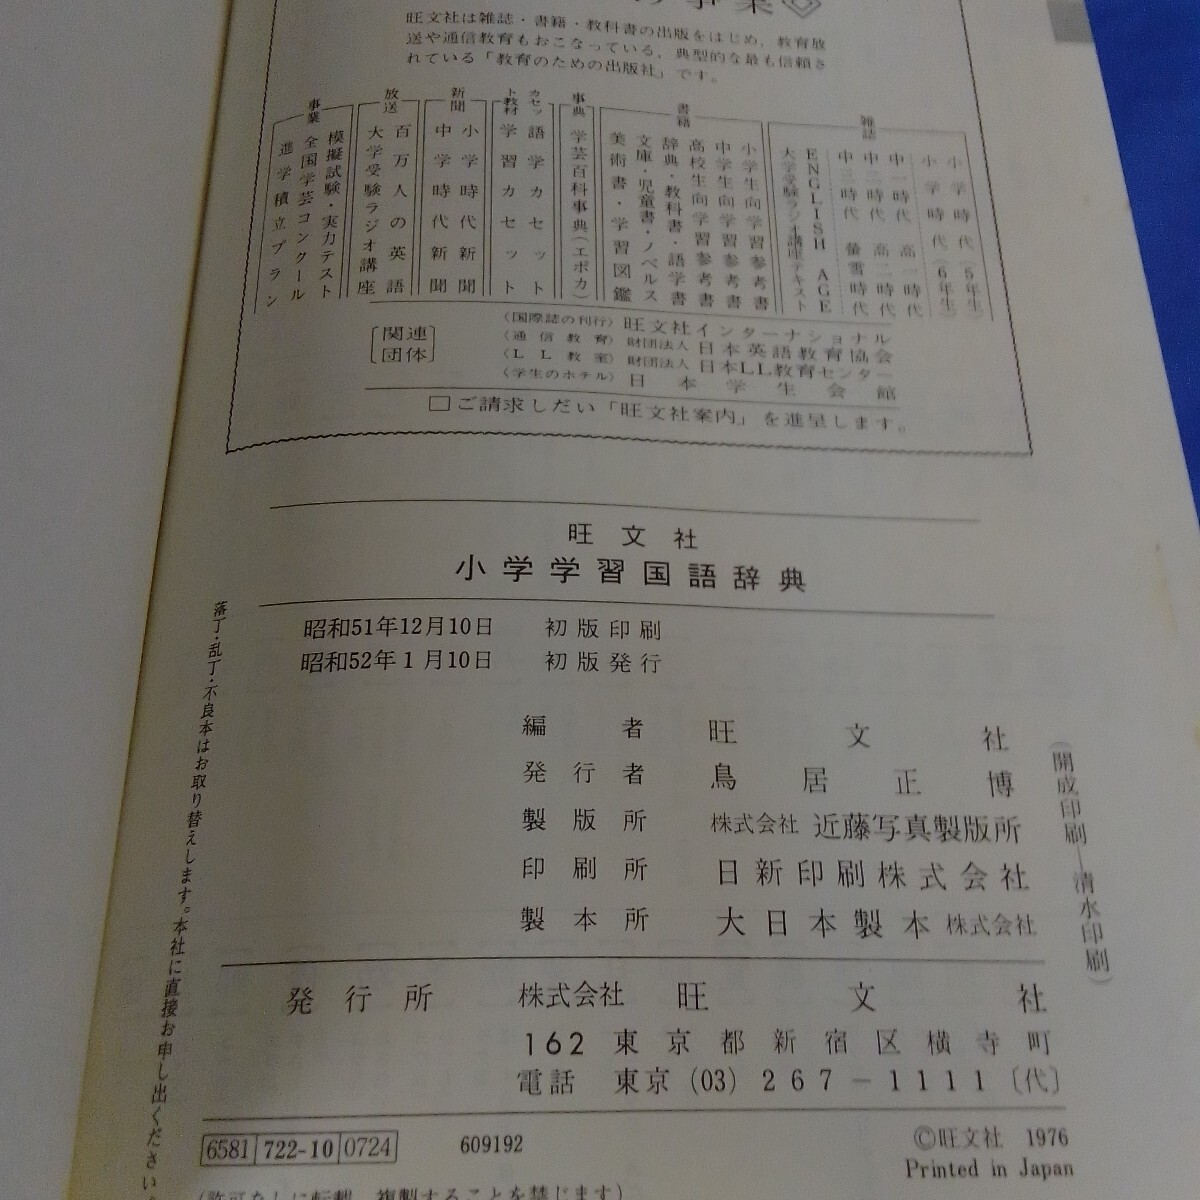 旺文社は雑誌・書籍・教科書の出版をはじめ，教育放
送や通信教育もおこなっている，典型的な最も信頼さ
れている「教育のための出版社」です。
雑誌
小学時代(5年生)
小学時代(6年生)
中一時代 高一時代
中二時代 高二時代
中三時代 螢雪時代
ENGLISH AGE
大学受験ラジオ講座テキスト
書籍
小学生向学習参考書
中学生向学習参考書
高校生向学習参考書
辞典・教科書・語学書
文庫・児童書・ノベルス
美術書・学習図鑑
事典
学芸百科事典(エポカ)
カセット教材
語学カセット
学習カセット
新聞
小学時代新聞
中学時代新聞
放送
百万人の英語
大学受験ラジオ講座
事業
模擬試験・実力テスト
全国学芸コンクール
進学積立プラン
〔関連団体〕
(国際誌の刊行) 旺文社インターナショナル
(通信教育) 財団法人 日本英語教育協会
(LL教室) 財団法人 日本LL教育センター
(学生のホテル) 日本学生会館
□ご請求しだい「旺文社案内」を進呈します。
旺文社
小学学習国語辞典
昭和51年12月10日 初版印刷
昭和52年1月10日 初版発行
編者 旺文社
発行者 鳥居正博
製版所 株式会社 近藤写真製版所
印刷所 日新印刷株式会社
製本所 大日本製本 株式会社
(開成印刷―清水印刷)
発行所 株式会社 旺文社
162 東京都新宿区横寺町
電話 東京 (03) 267－1111〔代〕
落丁・乱丁・不良本はお取り替えします。本社に直接お申し出ください。
6581 722-10 0724 609192
©旺文社 1976
Printed in Japan
(許可なしに転載，複製することを禁じます)